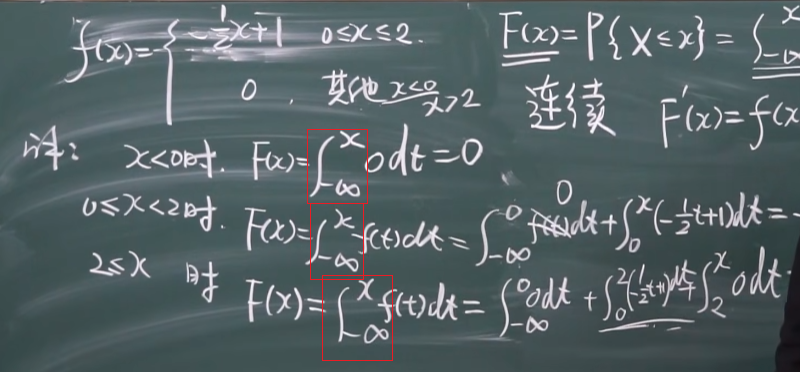 f(x)={ -1/2x+1 0≤x≤2.
0, 其他 x<0 x>2
F(x)=P{X≤x}=∫_{-∞}^{x}
连续 F'(x)=f(x
解: x<0时. F(x)=∫_{-∞}^{x}0dt=0
0≤x<2时. F(x)=∫_{-∞}^{x}f(t)dt=∫_{-∞}^{0}0dt+∫_{0}^{x}(-1/2t+1)dt=-
2≤x 时 F(x)=∫_{-∞}^{x}f(t)dt=∫_{-∞}^{0}0dt+∫_{0}^{2}(-1/2t+1)dt+∫_{2}^{x}0dt